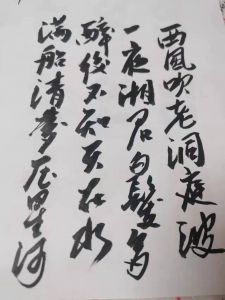 西风吹老洞庭波
一夜湘君白髮多
醉後不知天在水
满船清梦压星河